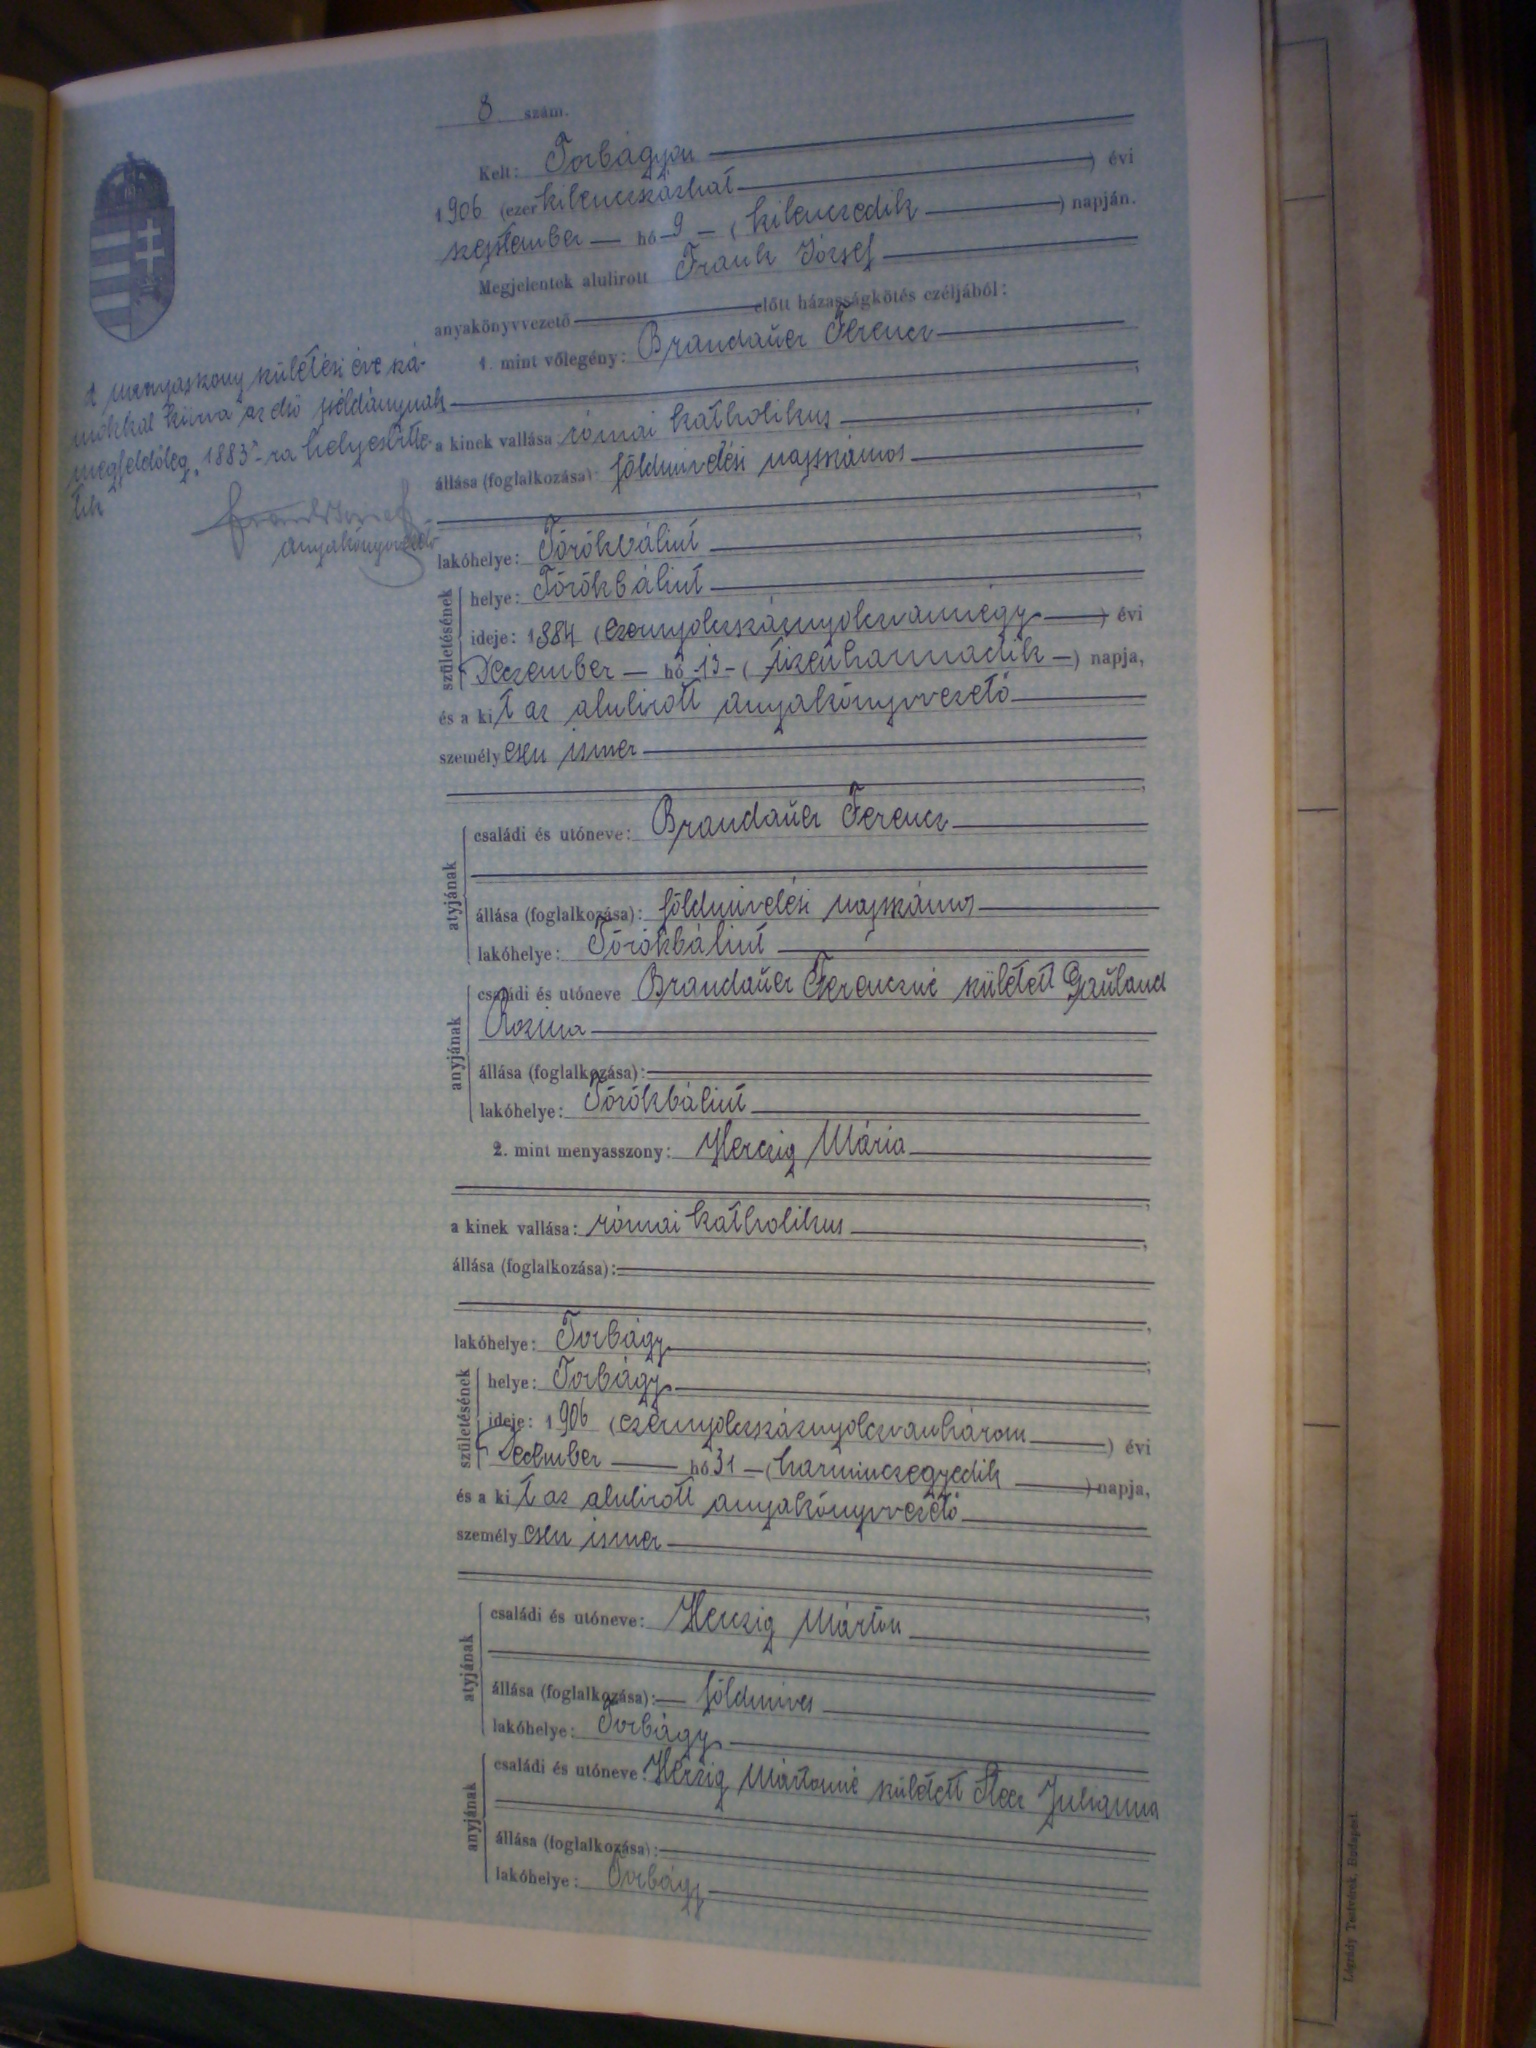 8 szám.
Kelt: Torbágyon
1906 (ezerkilenczszázhat) évi
szeptember hó 9 (kilenczedik) napján.
Megjelentek alulirott Frank József
anyakönyvvezető előtt házasságkötés czéljából:
1. mint vőlegény: Brandaŭer Ferencz
a kinek vallása római katholikus,
állása (foglalkozása) földmivelési napszámos
lakóhelye: Törökbálint,
születésének
helye: Törökbálint
ideje: 1884 (ezernyolczszáznyolczvannégy) évi
Deczember hó 13 (tizenharmadik) napja,
és a kit az alulirott anyakönyvvezető
személyesen ismer
atyjának
családi és utóneve: Brandaŭer Ferencz
állása (foglalkozása): földmivelési napszámos
lakóhelye: Törökbálint
anyjának
családi és utóneve Brandaŭer Ferenczné született Gaŭland
Rozina
állása (foglalkozása):
lakóhelye: Törökbálint
2. mint menyasszony: Herczig Mária
a kinek vallása: római katholikus,
állása (foglalkozása):
lakóhelye: Torbágy,
születésének
helye: Torbágy
ideje: 1906 (ezernyolczszáznyolczvanhárom) évi
December hó 31 (harminczegyedik) napja,
és a kit az alulirott anyakönyvvezető
személyesen ismer
atyjának
családi és utóneve: Herczig Márton
állása (foglalkozása): földmives
lakóhelye: Torbágy
anyjának
családi és utóneve: Herczig Mártonné született Juliánna
állása (foglalkozása):
lakóhelye: Torbágy
A menyasszony születési éve szá-
mokkal kiirva az első példánynak
megfelelőleg „1883"-ra helyesbítte-
tik
Frank József
anyakönyvvezető
Légrády Testvérek, Budapest